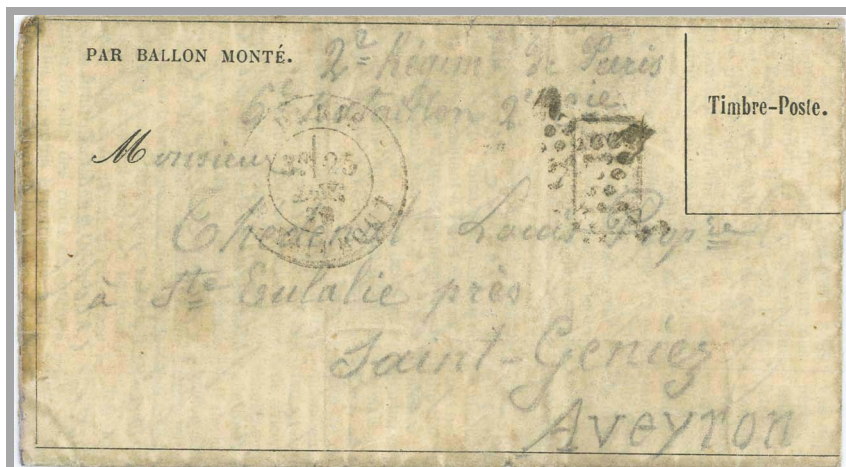 PAR BALLON MONTÉ.
2e Régimt de Paris
6e Bataillon 2e Cie
Timbre-Poste.
Monsieur
25
Louis Propre
à Ste Eulalie près
Saint-Geniez
Aveyron